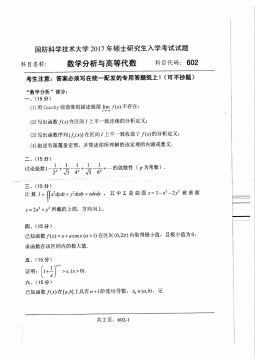 国防科学技术大学 2017 年硕士研究生入学考试试题
科目名称: 数学分析与高等代数 科目代码: 602
考生注意: 答案必须写在统一配发的专用答题纸上!(可不抄题)
“数学分析”部分:
一、(15 分)
(1) 用 Cauchy 收敛准则叙述极限 f(x) 不存在;
(2) 写出函数 f(x) 在区间 I 上不一致连续的分析定义;
(3) 写出函数列{fₙ(x)}在区间 I 上不一致收敛于 f(x) 的分析定义;
(4) 叙述有限覆盖定理, 并简述你所理解的该定理的内涵或意义.
二、(15 分)
的敛散性 (p 为常数).
三、(15 分)
计算 I = ∬ x²dydz + y²dzdx + zdxdy, 其中 Σ 是曲面 z = 3 - x² - 2y² 被曲面
z = 2x² + y² 所截的上部, 方向向上.
四、(15 分)
已知函数 f(x) = x + a cos x (a > 1) 在区间 (0, 2π) 内取得极小值, 且极小值为 0,
求函数在该区间内的极大值.
五、(15 分)
六、(15 分)
已知函数 f(x) 在 [a,b] 上具有 n+1 阶连续导数, x₀ ∈ (a,b), 记
共 2 页, 602-1